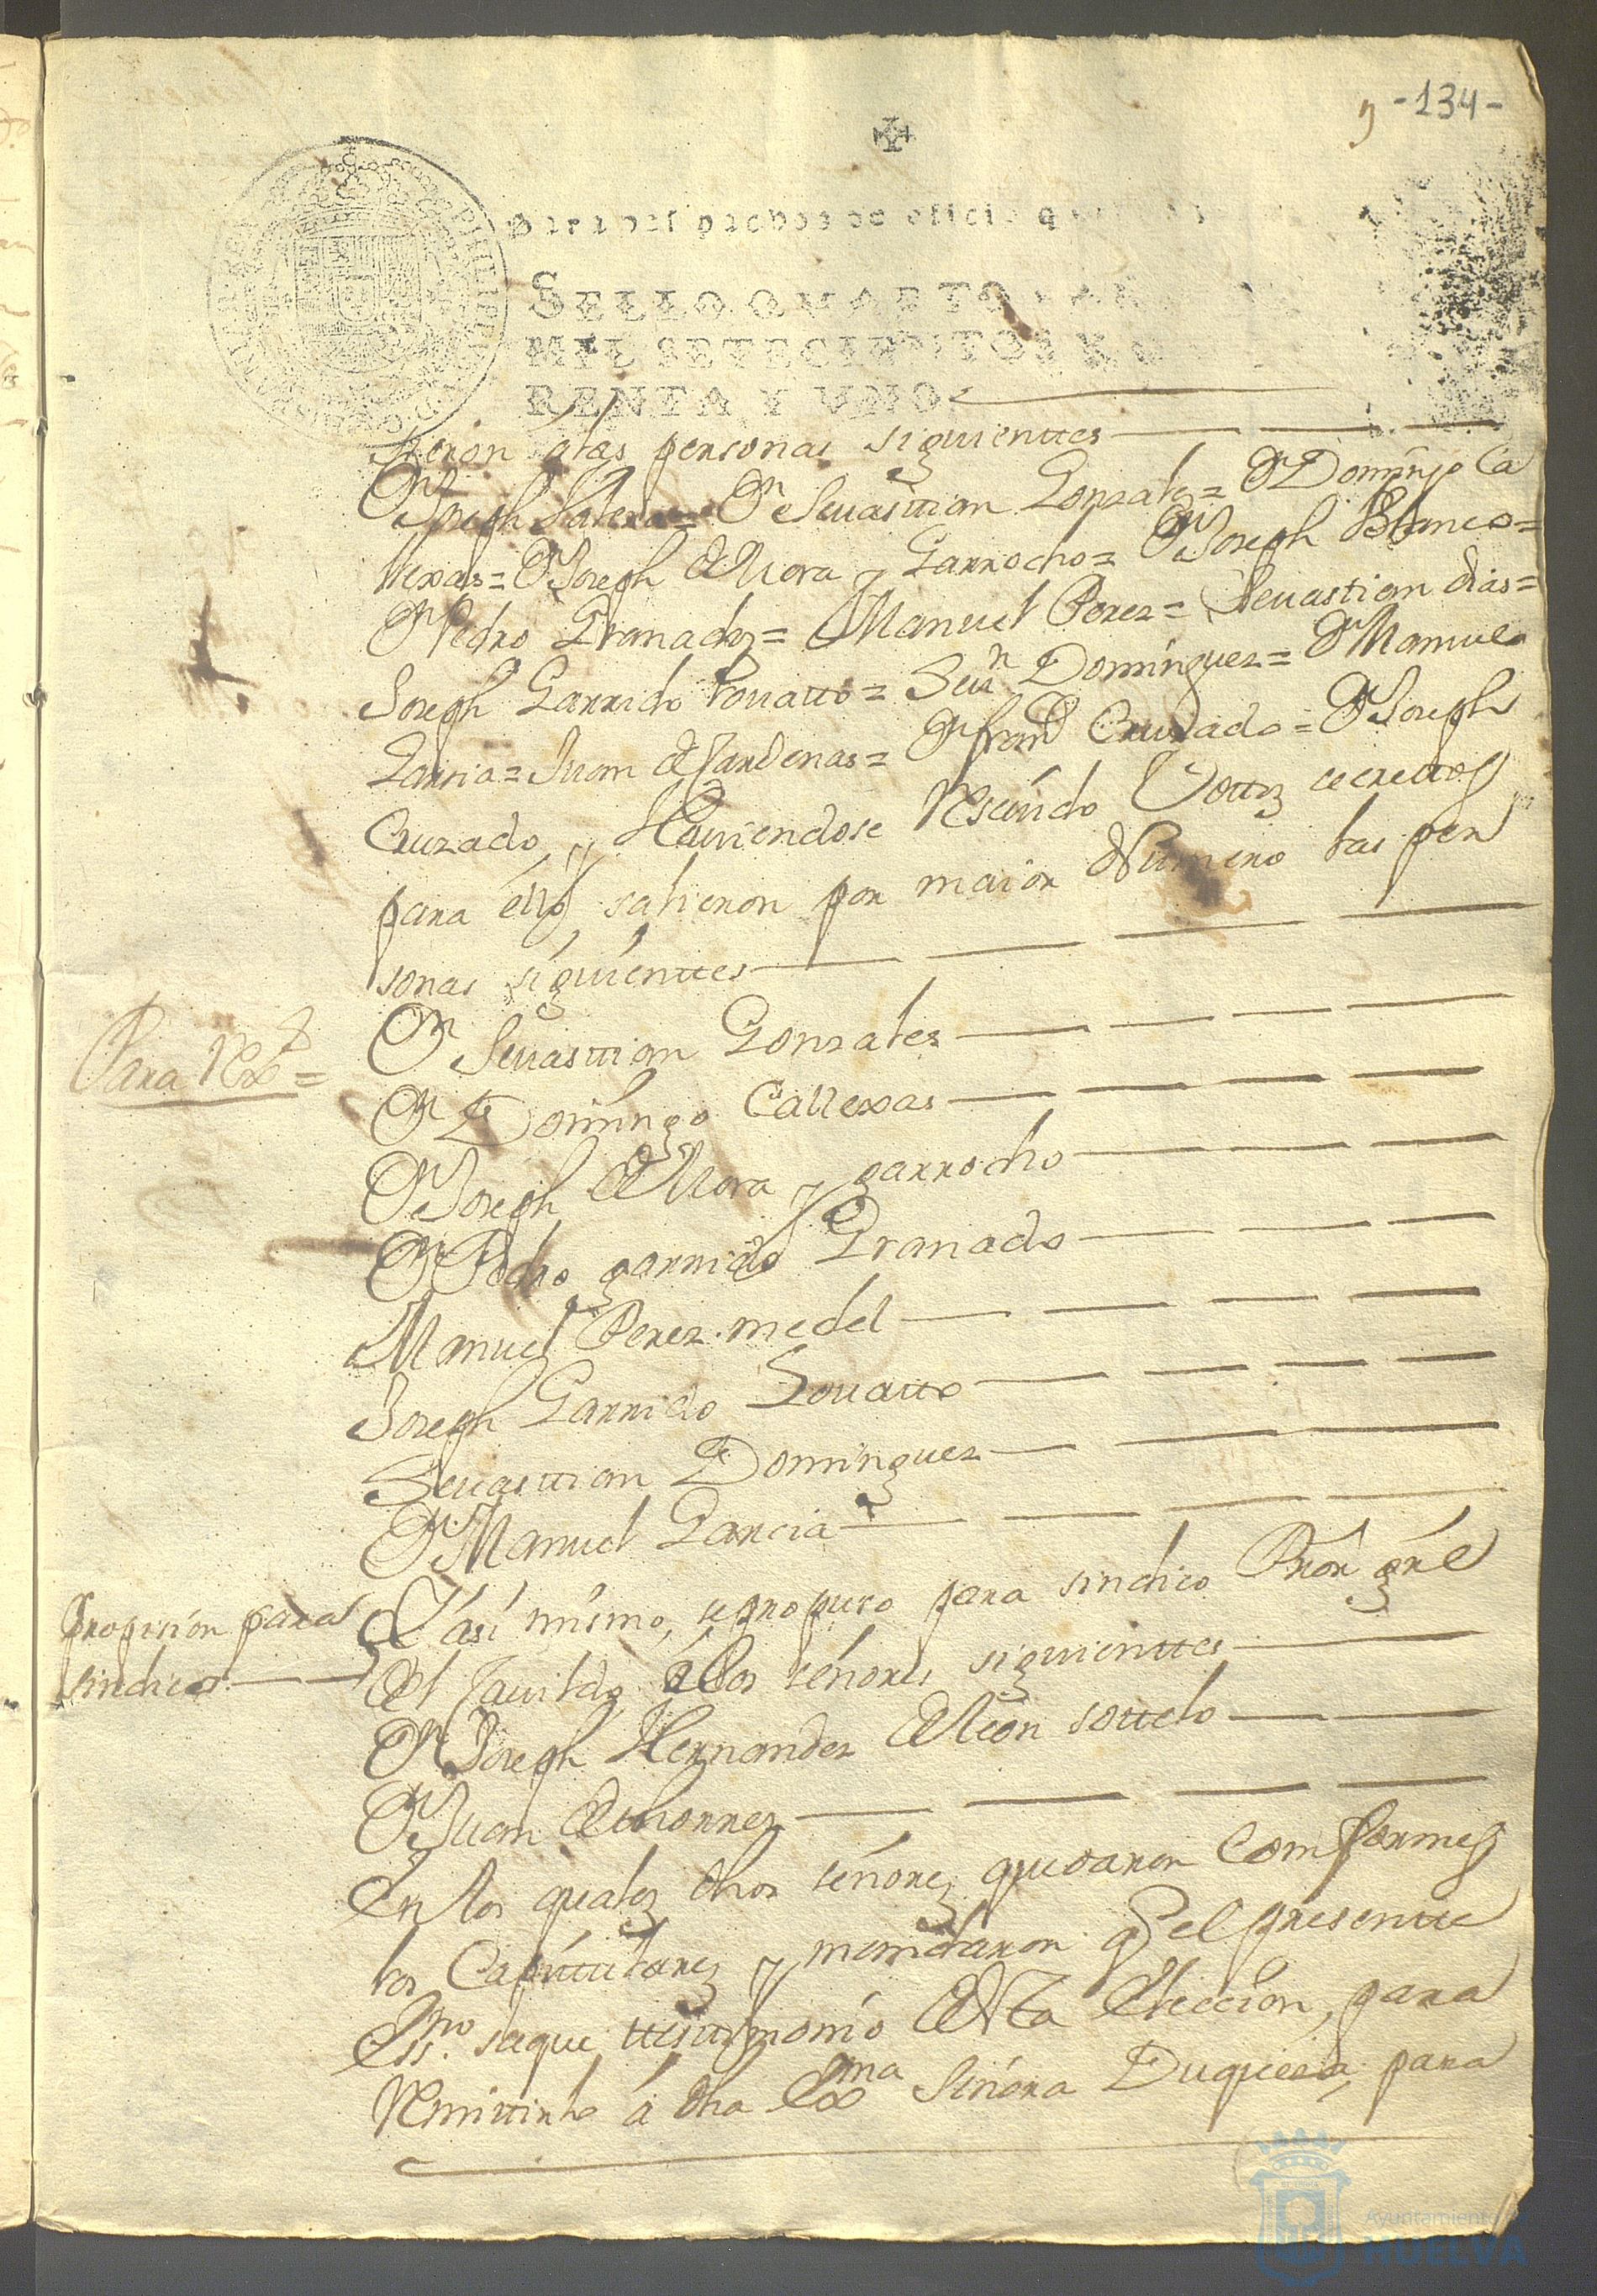 9 -134-
Para despachos de oficio q
SELLO QVARTO, A
MIL SETECIENTOS Y Q
RENTA Y VNO.
sieron a las personas siguienttes
Dn Joseph Dn Sevasttian Gonzales = Dn Domingo Ca
llexas = Dn Joseph de Mora y Garrocho = Dn Joseph Blanco =
Dn Pedro Granados = Manuel Perez = Sevastian dias =
Joseph Garrido Lovatto = Sevn Dominguez = Dn Manuel
Garcia = Juan de Cardenas = Dn Franco Cruzado = Dn Joseph
Cruzado, y Haviendose Resevido Vottos secrettos
para ello, salieron por maior Numero las per
sonas siguienttes
Para Rexres =
Dn Sevasttian Gonzales
Dn Domingo Callexas
Dn Joseph de Mora y garrocho
Dn Pedro garrido Granado
Manuel Perez medel
Joseph Garrido Lovatto
Sevasttian Dominguez
Dn Manuel Garcia
Propisión para
sindico
Y así mismo, se propuso para sindico Pror gral
del Cavildo a los señores siguienttes
Dn Joseph Hernandez de León sottelo
Dn Juan de thorres
en los quales dhos señores quedaron Comformes
los Capittulares y mandaron qe el presentte
Essno saque ttesttimonio de esta Elección, para
Remittirlo á dha Exma Señora Duquesa, para
Ayuntamiento de
HUELVA